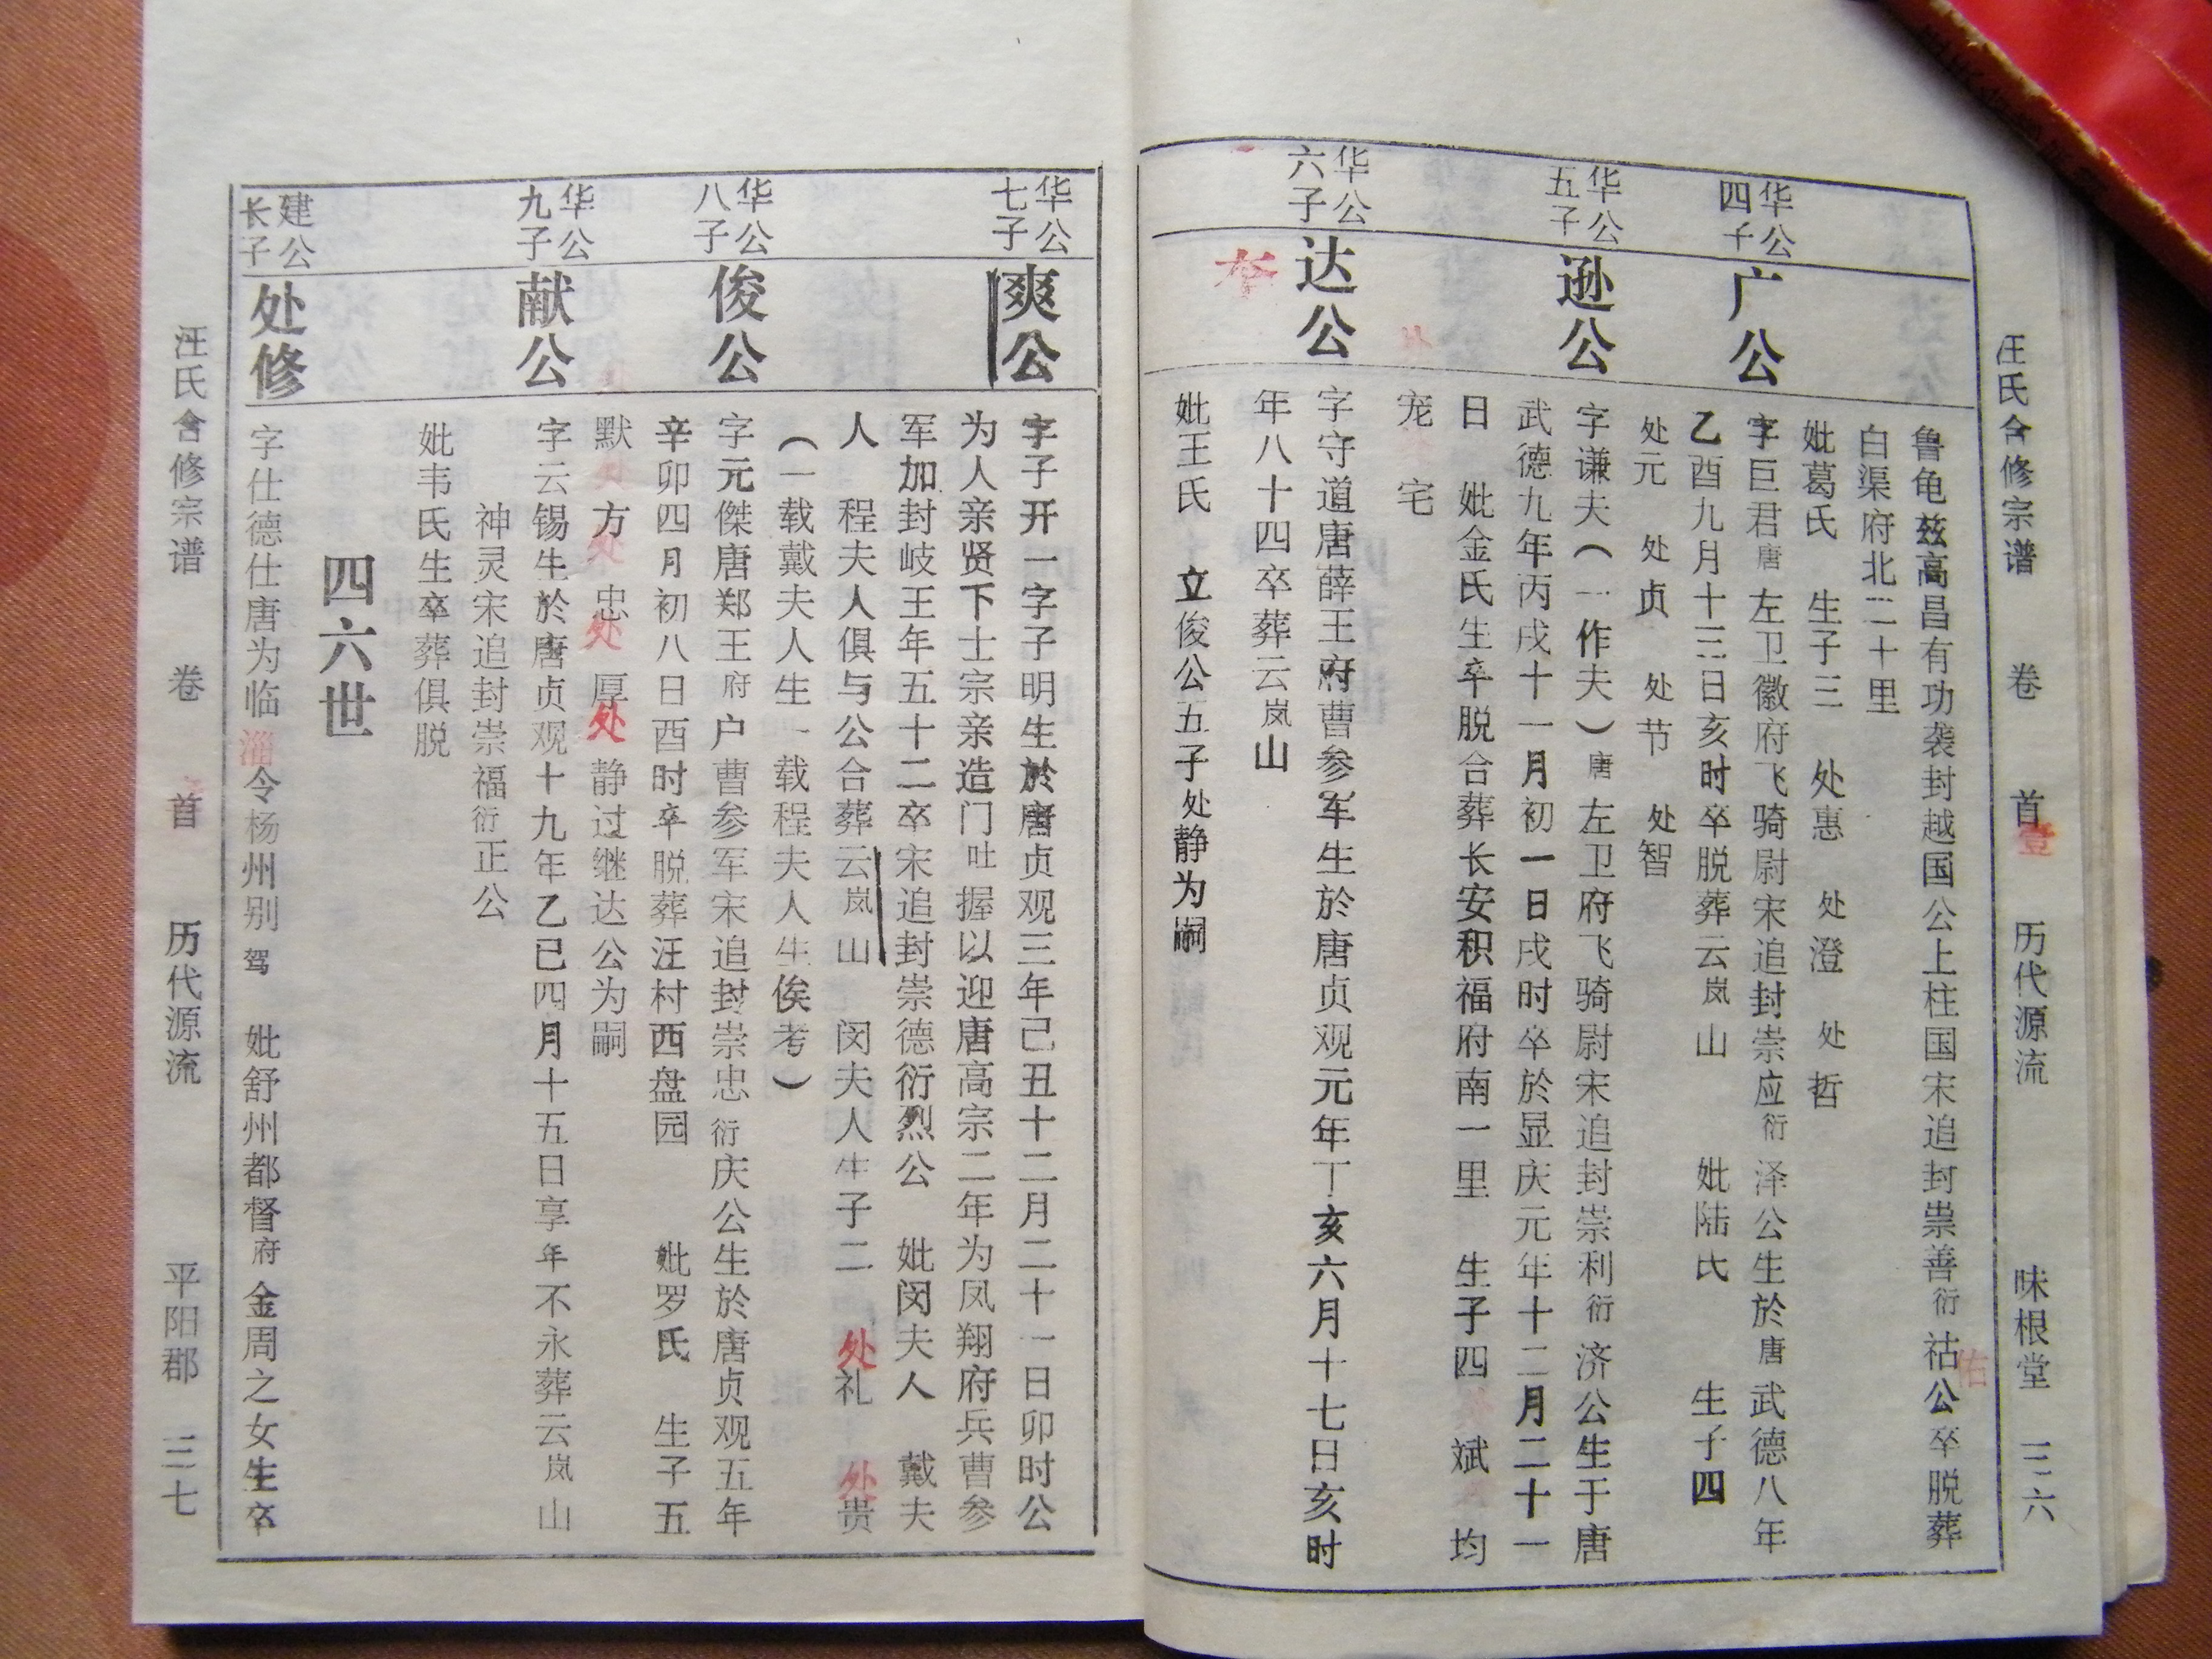 汪氏合修宗谱 卷 首 壹 历代源流 味根堂 三六
鲁龟兹高昌有功袭封越国公上柱国宋追封祟善衍祜公卒脱葬
佑
白渠府北二十里
妣葛氏 生子三 处惠 处澄 处哲
华公四子
广公
字巨君唐左卫徽府飞骑尉宋追封崇应衍泽公生於唐武德八年
乙酉九月十三日亥时卒脱葬云岚山 妣陆氏 生子四
处元 处贞 处节 处智
华公五子
逊公
字谦夫(一作夫)唐左卫府飞骑尉宋追封崇利衍济公生于唐
武德九年丙戌十一月初一日戌时卒於显庆元年十二月二十一
日 妣金氏生卒脱合葬长安积福府南一里 生子四 斌 均
宠 宅
华公六子
达公
字守道唐薛王府曹参军生於唐贞观元年丁亥六月十七日亥时
年八十四卒葬云岚山
妣王氏 立俊公五子处静为嗣
华公七子
爽公
字子开一字子明生於唐贞观三年己丑十二月二十一日卯时公
为人亲贤下士宗亲造门吐握以迎唐高宗二年为凤翔府兵曹参
军加封岐王年五十二卒宋追封崇德衍烈公 妣闵夫人 戴夫
人 程夫人俱与公合葬云岚山 闵夫人生子二 处礼 处贵
(一载戴夫人生一载程夫人生俟考)
华公八子
俊公
字元傑唐郑王府户曹参军宋追封崇忠衍庆公生於唐贞观五年
辛卯四月初八日酉时卒脱葬汪村西盘园 妣罗氏 生子五
默 方 忠 厚 静过继达公为嗣
处 处 处 处
华公九子
献公
字云锡生於唐贞观十九年乙巳四月十五日享年不永葬云岚山
神灵宋追封崇福衍正公
妣韦氏生卒葬俱脱
四六世
建公长子
处修
字仕德仕唐为临淄令杨州别驾 妣舒州都督府金周之女生卒
汪氏合修宗谱 卷 首 历代源流 平阳郡 三七